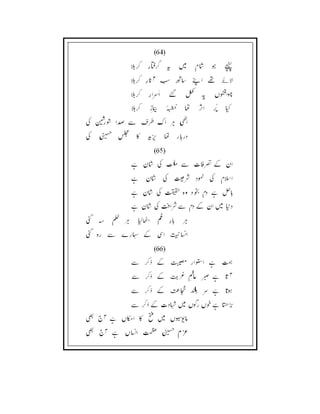 (64)
پہنچے جو شام میں یہ گرفتار کربلا
لائے تھے اپنے ساتھ سب آثار کربلا
چاروں طرف یہ کھل گئے اسرار کربلا
کیا پر اثر تھا کربلا
اٹھی ہر اک طرف سے صدا شور شین کی
دربار تھا یزید کا مجلس حسینؑ کی
(65)
ان کے تصرفات سے ملت کی شان ہے
اسلام کی نمود شریعت کی شان ہے
باطل ہے دم بخود وہ حقیقت کی شان ہے
دنیا میں ان کے دم سے شرافت کی شان ہے
ہر بار غم اٹھا لیا ہر ظلم سہ گئی
انسانیت اسی کے سہارے سے رہ گئی
(66)
ہمت ہے استوار مصیبت کے ذکر سے
آتا ہے صبر عالم غربت کے ذکر سے
ہوتا ہے سر بلند شجاعت کے ذکر سے
بڑھتا ہے خوں رگوں میں شہادت کے ذکر سے
مایوسیوں میں فتح کا امکاں ہے آج بھی
عزم حسینؑ عظمت انساں ہے آج بھی